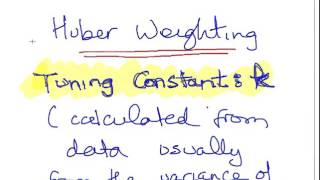 Huber Weighting
Tuning Constants k
( calculated from
data usually
from the variance of